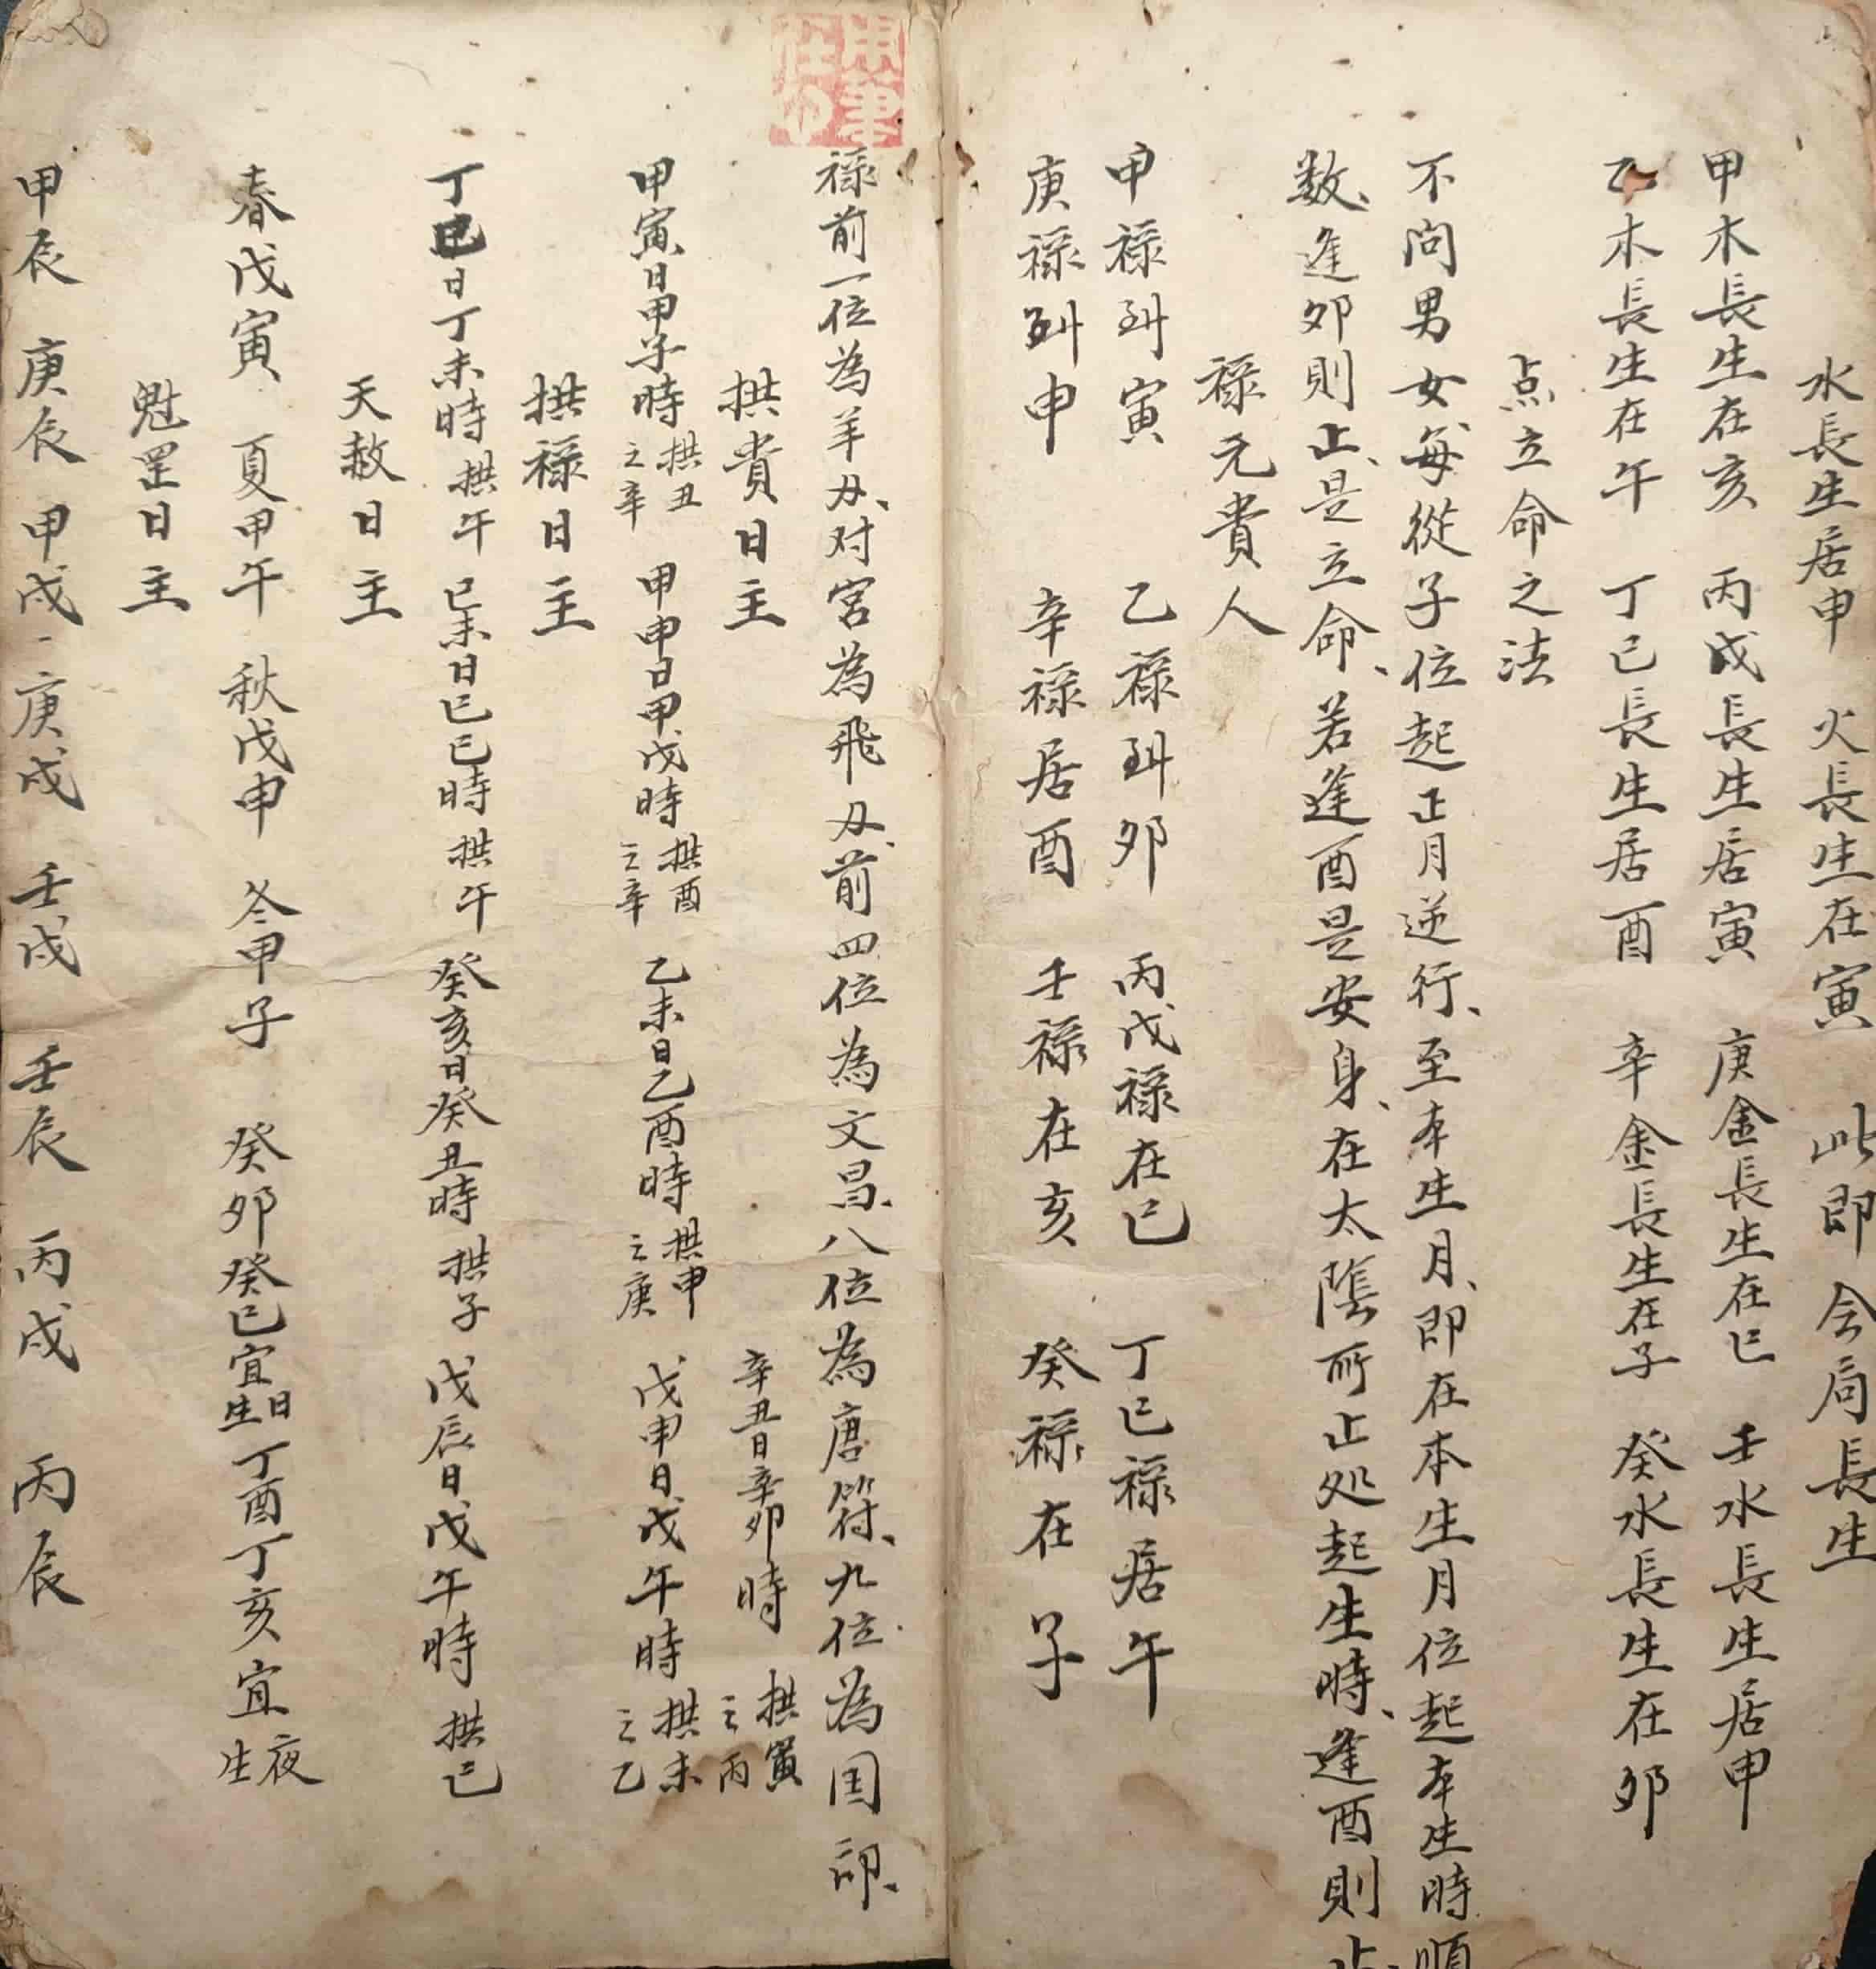 水長生居申　火長生在寅　此即会局長生
甲木長生在亥　丙戊長生居寅　庚金長生在巳　壬水長生居申
乙木長生在午　丁己長生居酉　辛金長生在子　癸水長生在卯
点立命之法
不问男女每從子位起正月逆行、至本生月、即在本生月位起本生時順
数、逢卯則止、是立命、若逢酉是安身、在太陰所止处起生時、逢酉則止
禄元貴人
甲禄到寅　乙禄到卯　丙戊禄在巳　丁己禄居午
庚禄到申　辛禄居酉　壬禄在亥　癸禄在子
禄前一位為羊刃、对宮為飛刃、前四位為文昌、八位為唐符、九位為国印、
拱貴日主　辛丑日辛卯時　拱寅之丙
甲寅日甲子時　拱丑之辛　甲申日甲戌時　拱酉之辛　乙未日乙酉時　拱申之庚　戊申日戊午時　拱未之乙
拱禄日主
丁巳日丁未時　拱午　己未日己巳時　拱午　癸亥日癸丑時　拱子　戊辰日戊午時　拱巳
天赦日主
春戊寅　夏甲午　秋戊申　冬甲子　癸卯癸巳宜日生丁酉丁亥宜夜生
魁罡日主
甲辰　庚辰　甲戌、庚戌　壬戌　壬辰　丙戌　丙辰